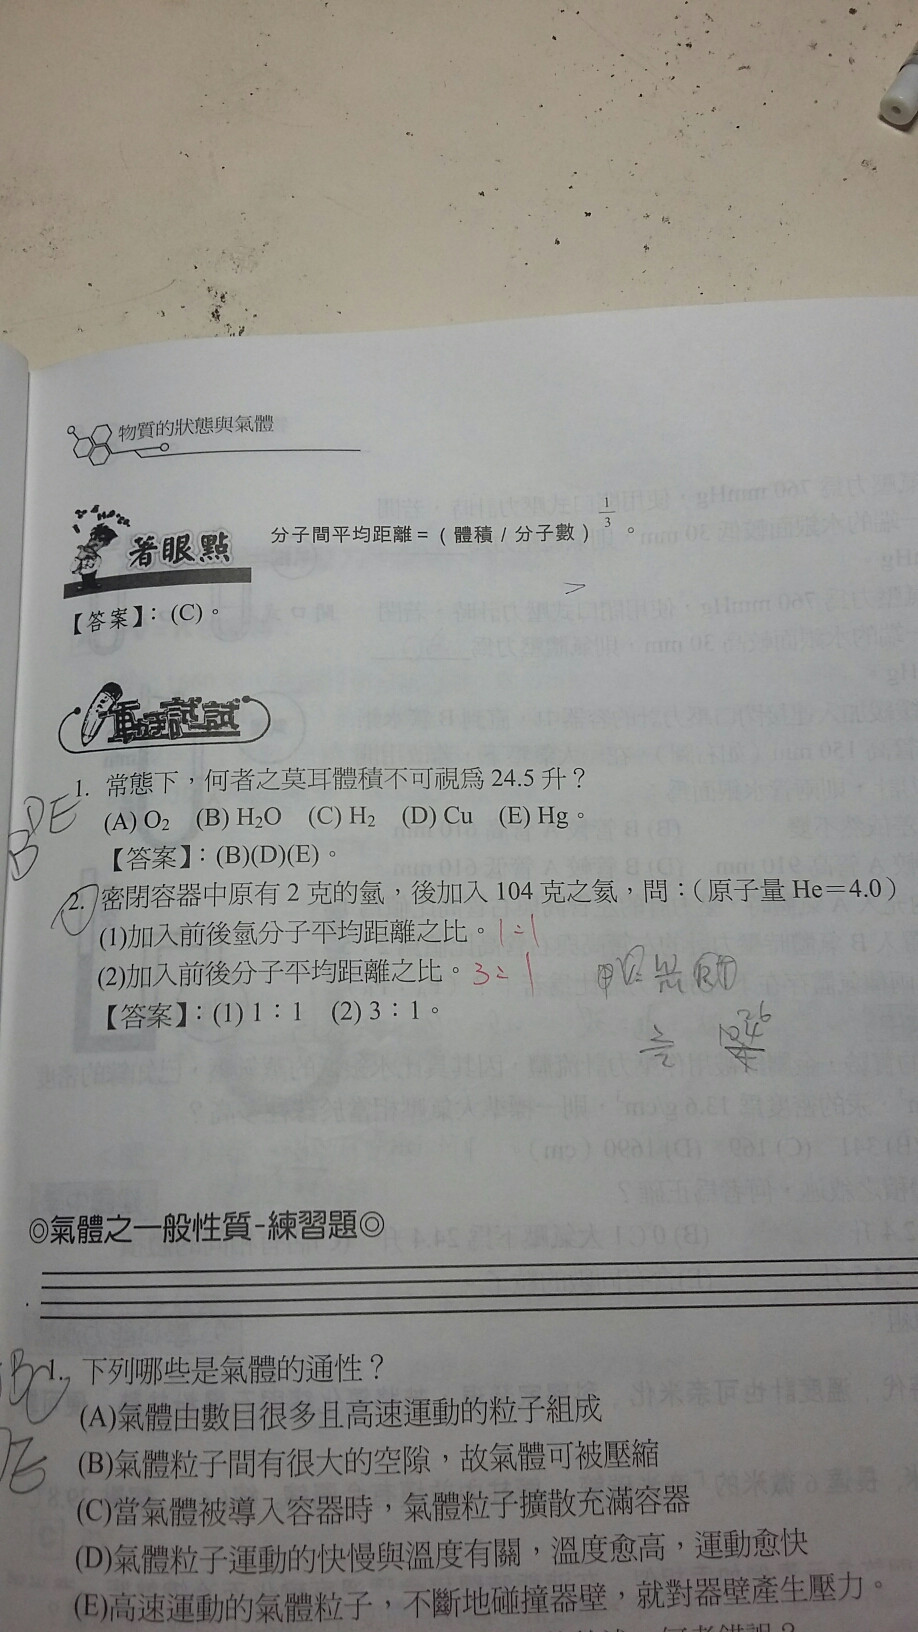 物質的狀態與氣體
著眼點 分子間平均距離＝（體積 / 分子數）1/3。
【答案】：(C)。
動手試試
1. 常態下，何者之莫耳體積不可視為 24.5 升？
BDE
(A) O₂ (B) H₂O (C) H₂ (D) Cu (E) Hg。
【答案】：(B)(D)(E)。
2. 密閉容器中原有 2 克的氫，後加入 104 克之氦，問：（原子量 He＝4.0）
(1)加入前後氫分子平均距離之比。1:1
(2)加入前後分子平均距離之比。3:1
【答案】：(1) 1：1 (2) 3：1。
2/2 104/4 26
◎氣體之一般性質-練習題◎
1. 下列哪些是氣體的通性？
(A)氣體由數目很多且高速運動的粒子組成
(B)氣體粒子間有很大的空隙，故氣體可被壓縮
(C)當氣體被導入容器時，氣體粒子擴散充滿容器
(D)氣體粒子運動的快慢與溫度有關，溫度愈高，運動愈快
(E)高速運動的氣體粒子，不斷地碰撞器壁，就對器壁產生壓力。